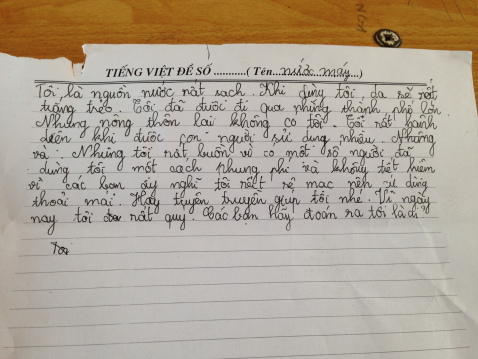 TIẾNG VIỆT ĐỀ SỐ ...........( Tên...nước...máy...)
Tôi là nguồn nước rất sạch. Khi dùng tôi, da sẽ rất
trắng trẻo. Tôi đã được đi qua những thành phố lớn.
Nhưng nông thôn lai không có tôi. Tôi rất hãnh
diện khi được con người sử dụng nhiều. Nhưng
và. Nhưng tôi rất buồn vì có một số người đã
dùng tôi một cách phung phí và không tiết kiệm
vì các bạn ấy nghĩ tôi rất rẻ mạc nên sử dụng
thoải mai. Hãy tuyên truyền giúp tôi nhé. Vì ngày
nay tôi rất quý. Các bạn hãy đoán ra tôi là gì?
Tôi